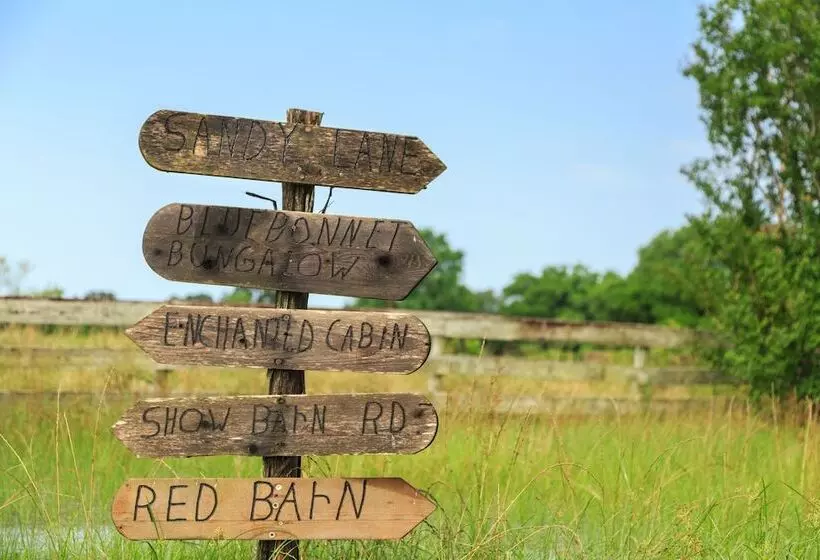 SANDY LANE
BLUEBONNET
BUNGALOW
ENCHANTED CABIN
SHOW BARN RD
RED BARN